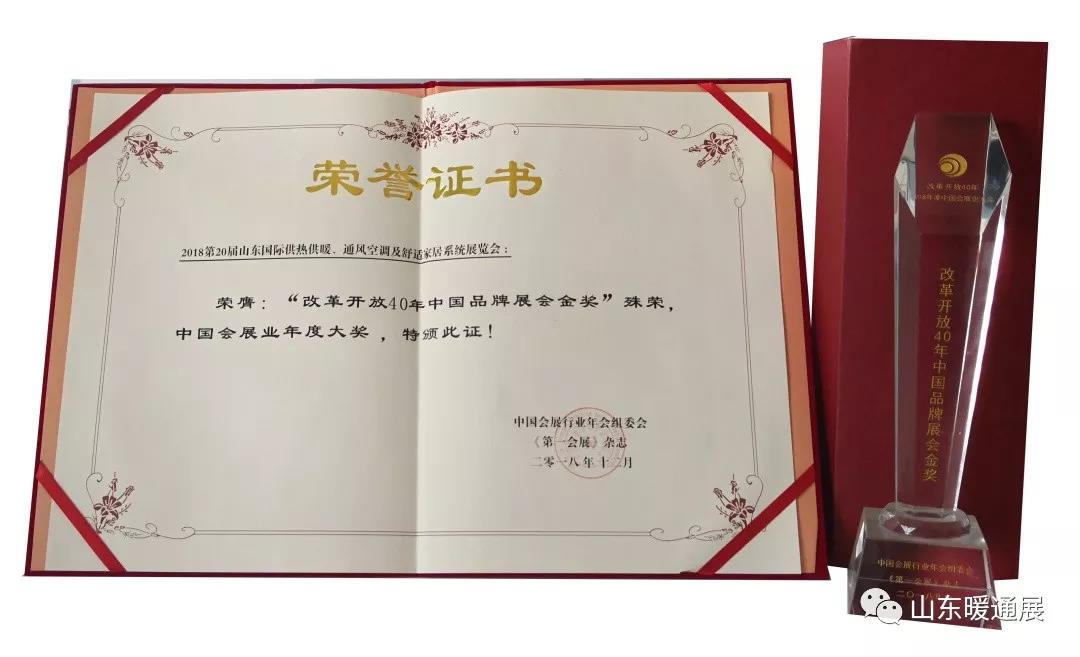 荣誉证书
2018第20届山东国际供热供暖、通风空调及舒适家居系统展览会：
荣膺：“改革开放40年中国品牌展会金奖”殊荣，
中国会展业年度大奖，特颁此证！
中国会展行业年会组委会
《第一会展》杂志
二零一八年十二月
改革开放40年
改革开放40年中国品牌展会金奖
中国会展行业年会组委会
《第一会展》杂
二〇一八
山东暖通展